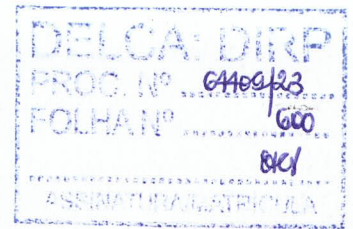 DELCA: DIRP
PROC. Nº 64409/23
FOLHA Nº 600
ASSINATURA/MATRÍCULA